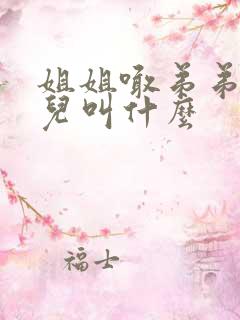 姐姐噉弟弟
兒叫什麼
福士